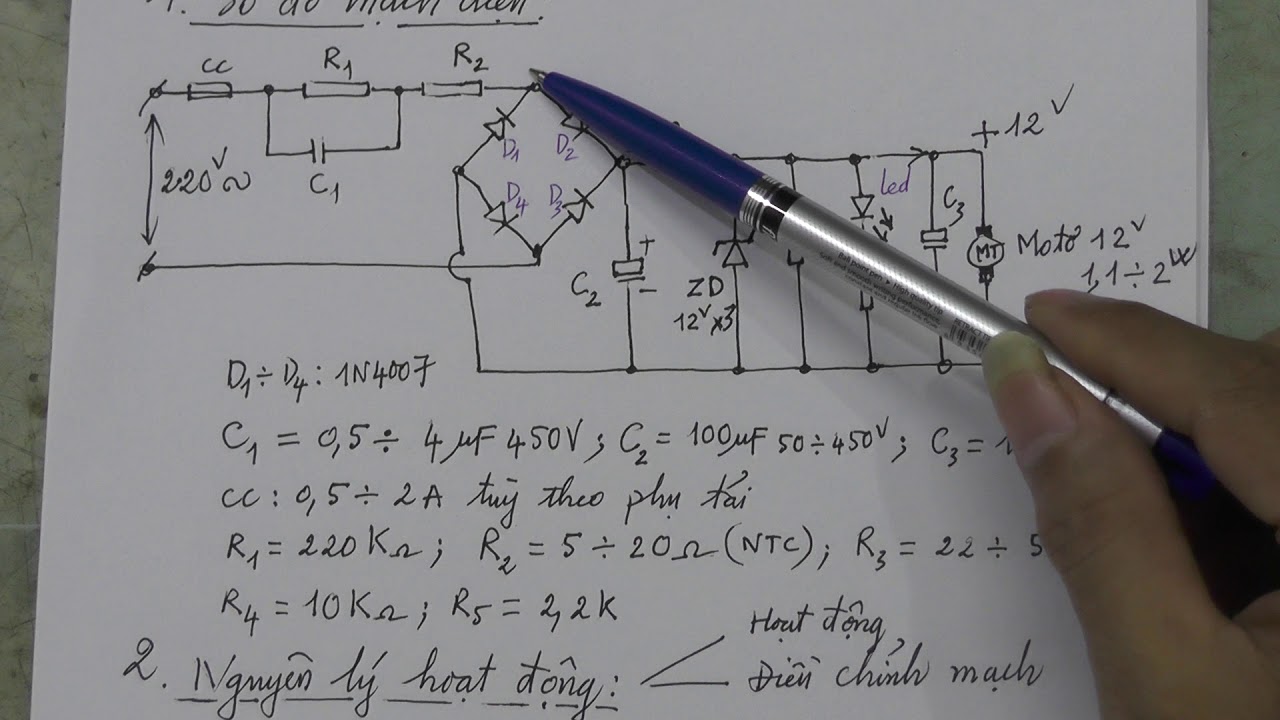 1. Sơ đồ mạch điện.
CC R1 R2
C1
220V~
D1 D2
D4 D3
C2 + -
ZD
12V x3
led
C3
+12V
MT
Motơ 12V
1,1÷2W
D1÷D4: 1N4007
C1 = 0,5÷ 4µF 450V; C2 = 100µF 50÷450V; C3 =
CC: 0,5÷ 2A tuỳ theo phụ tải
R1= 220KΩ; R2 = 5÷20Ω (NTC); R3 = 22÷ 5
R4 = 10KΩ; R5 = 2,2K
2. Nguyên lý hoạt động:
Hoạt động
Điều chỉnh mạch